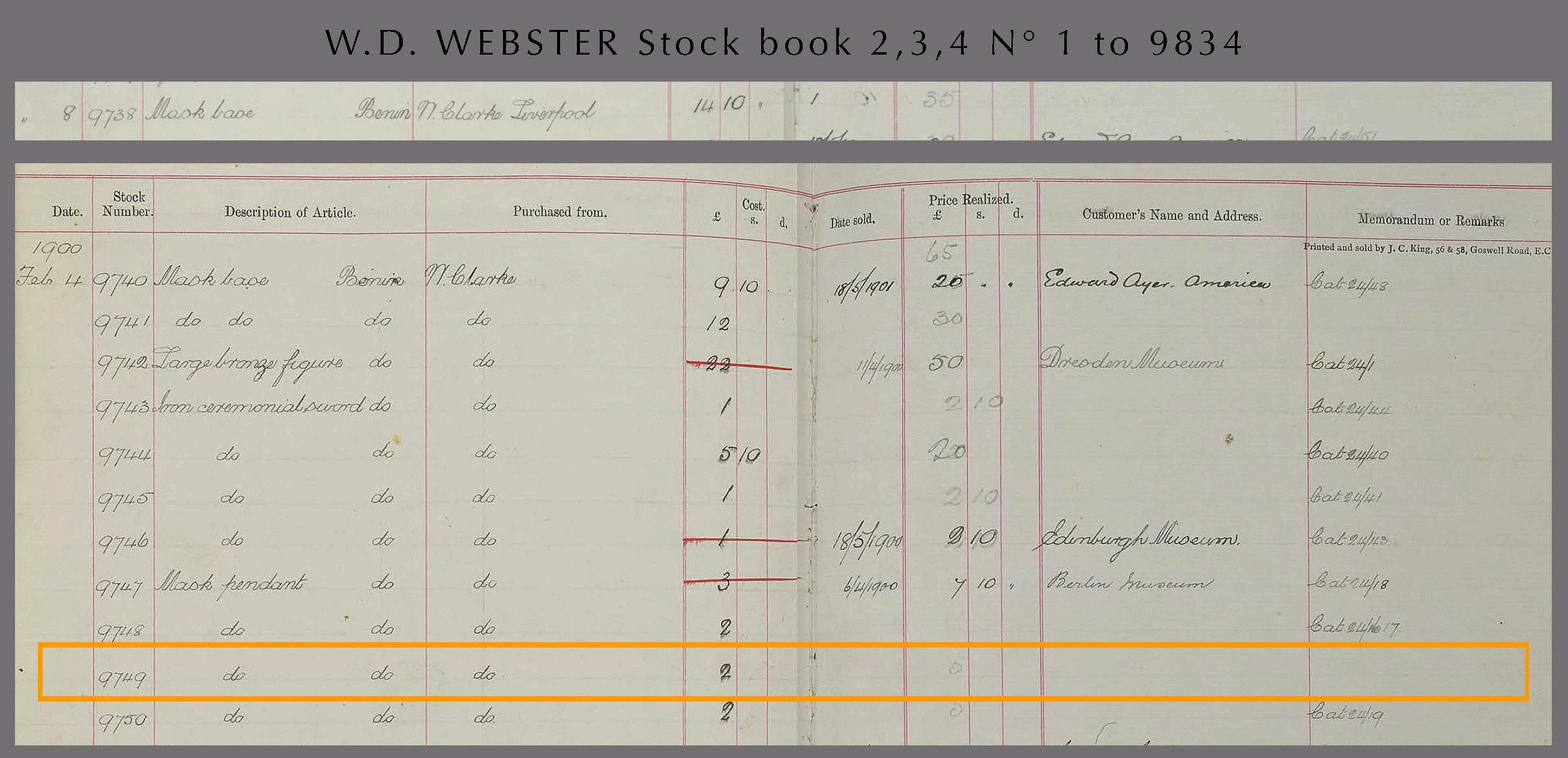 W.D. WEBSTER Stock book 2,3,4 N° 1 to 9834
„ 8 9738 Mask base Benin N. Clarke Liverpool 14 10 „ 1 35
Cat 24/51
Date. Stock Number. Description of Article. Purchased from. Cost. £ s. d. Date sold. Price Realized. £ s. d. Customer's Name and Address. Memorandum or Remarks
Printed and sold by J. C. King, 56 & 58, Goswell Road, E.C
1900 65
Feb 4 9740 Mask base Benin N. Clarke 9 10 18/5/1901 25 „ „ Edward Ayer. America Cat 24/48
9741 do do do do 12 30
9742 Large bronze figure do do 22 11/4/1900 50 Dresden Museum Cat 24/1
9743 Iron ceremonial sword do do 1 2 10 Cat 24/44
9744 do do do 5 10 20 Cat 24/40
9745 do do do 1 2 10 Cat 24/41
9746 do do do 1 18/5/1900 2 10 Edinburgh Museum. Cat 24/43
9747 Mask pendant do do 3 6/4/1900 7 10 „ Berlin Museum Cat 24/18
9748 do do do 2 Cat 24/17
9749 do do do 2
9750 do do do. 2 Cat 24/19